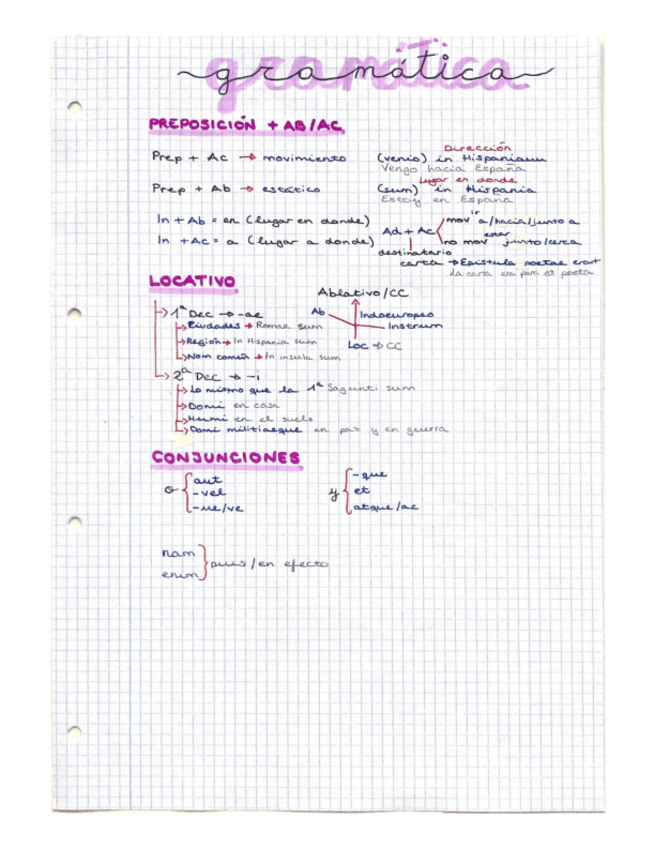 gramática
PREPOSICIÓN + AB/AC
Dirección
Prep + Ac → movimiento (venio) in Hispaniam
Vengo hacia España
Lugar en donde
Prep + Ab → estático (sum) in Hispania
Estoy en España
In + Ab = en (lugar en donde)
In + Ac = a (lugar a donde)
Ad + Ac
mov a/hacia/junto a
estar
no mov junto/cerca
destinatario
carta → Epistula poetae erat
La carta era para el poeta
LOCATIVO
Ablativo/CC
Ab
Indoeuropeo
Instrum
Loc → CC
1ª Dec → -ae
Ciudades → Romae sum
Región → In Hispania sum
Nom común → In insula sum
2ª Dec → -i
Lo mismo que la 1ª Sagunti sum
Domi en casa
Humi en el suelo
Domi militiaeque en paz y en guerra
CONJUNCIONES
o
aut
-vel
-ue/ve
y
-que
et
atque/ac
nam
enim
pues/en efecto